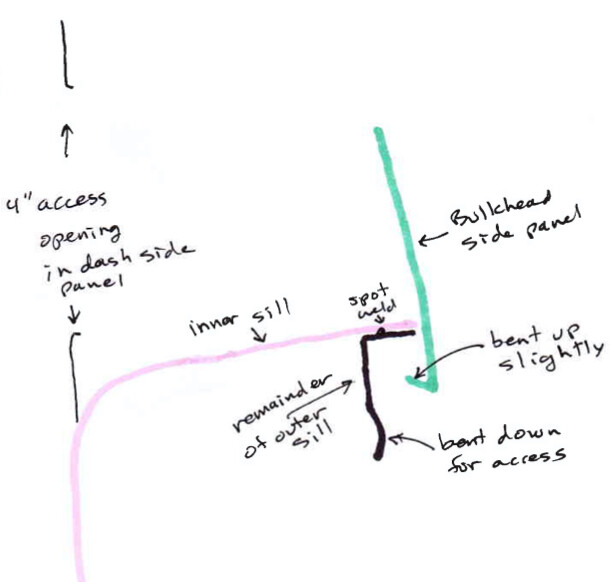 4" access
opening
in dash side
panel
inner sill
spot
weld
Bulkhead
side panel
bent up
slightly
remainder
of outer
sill
bent down
for access